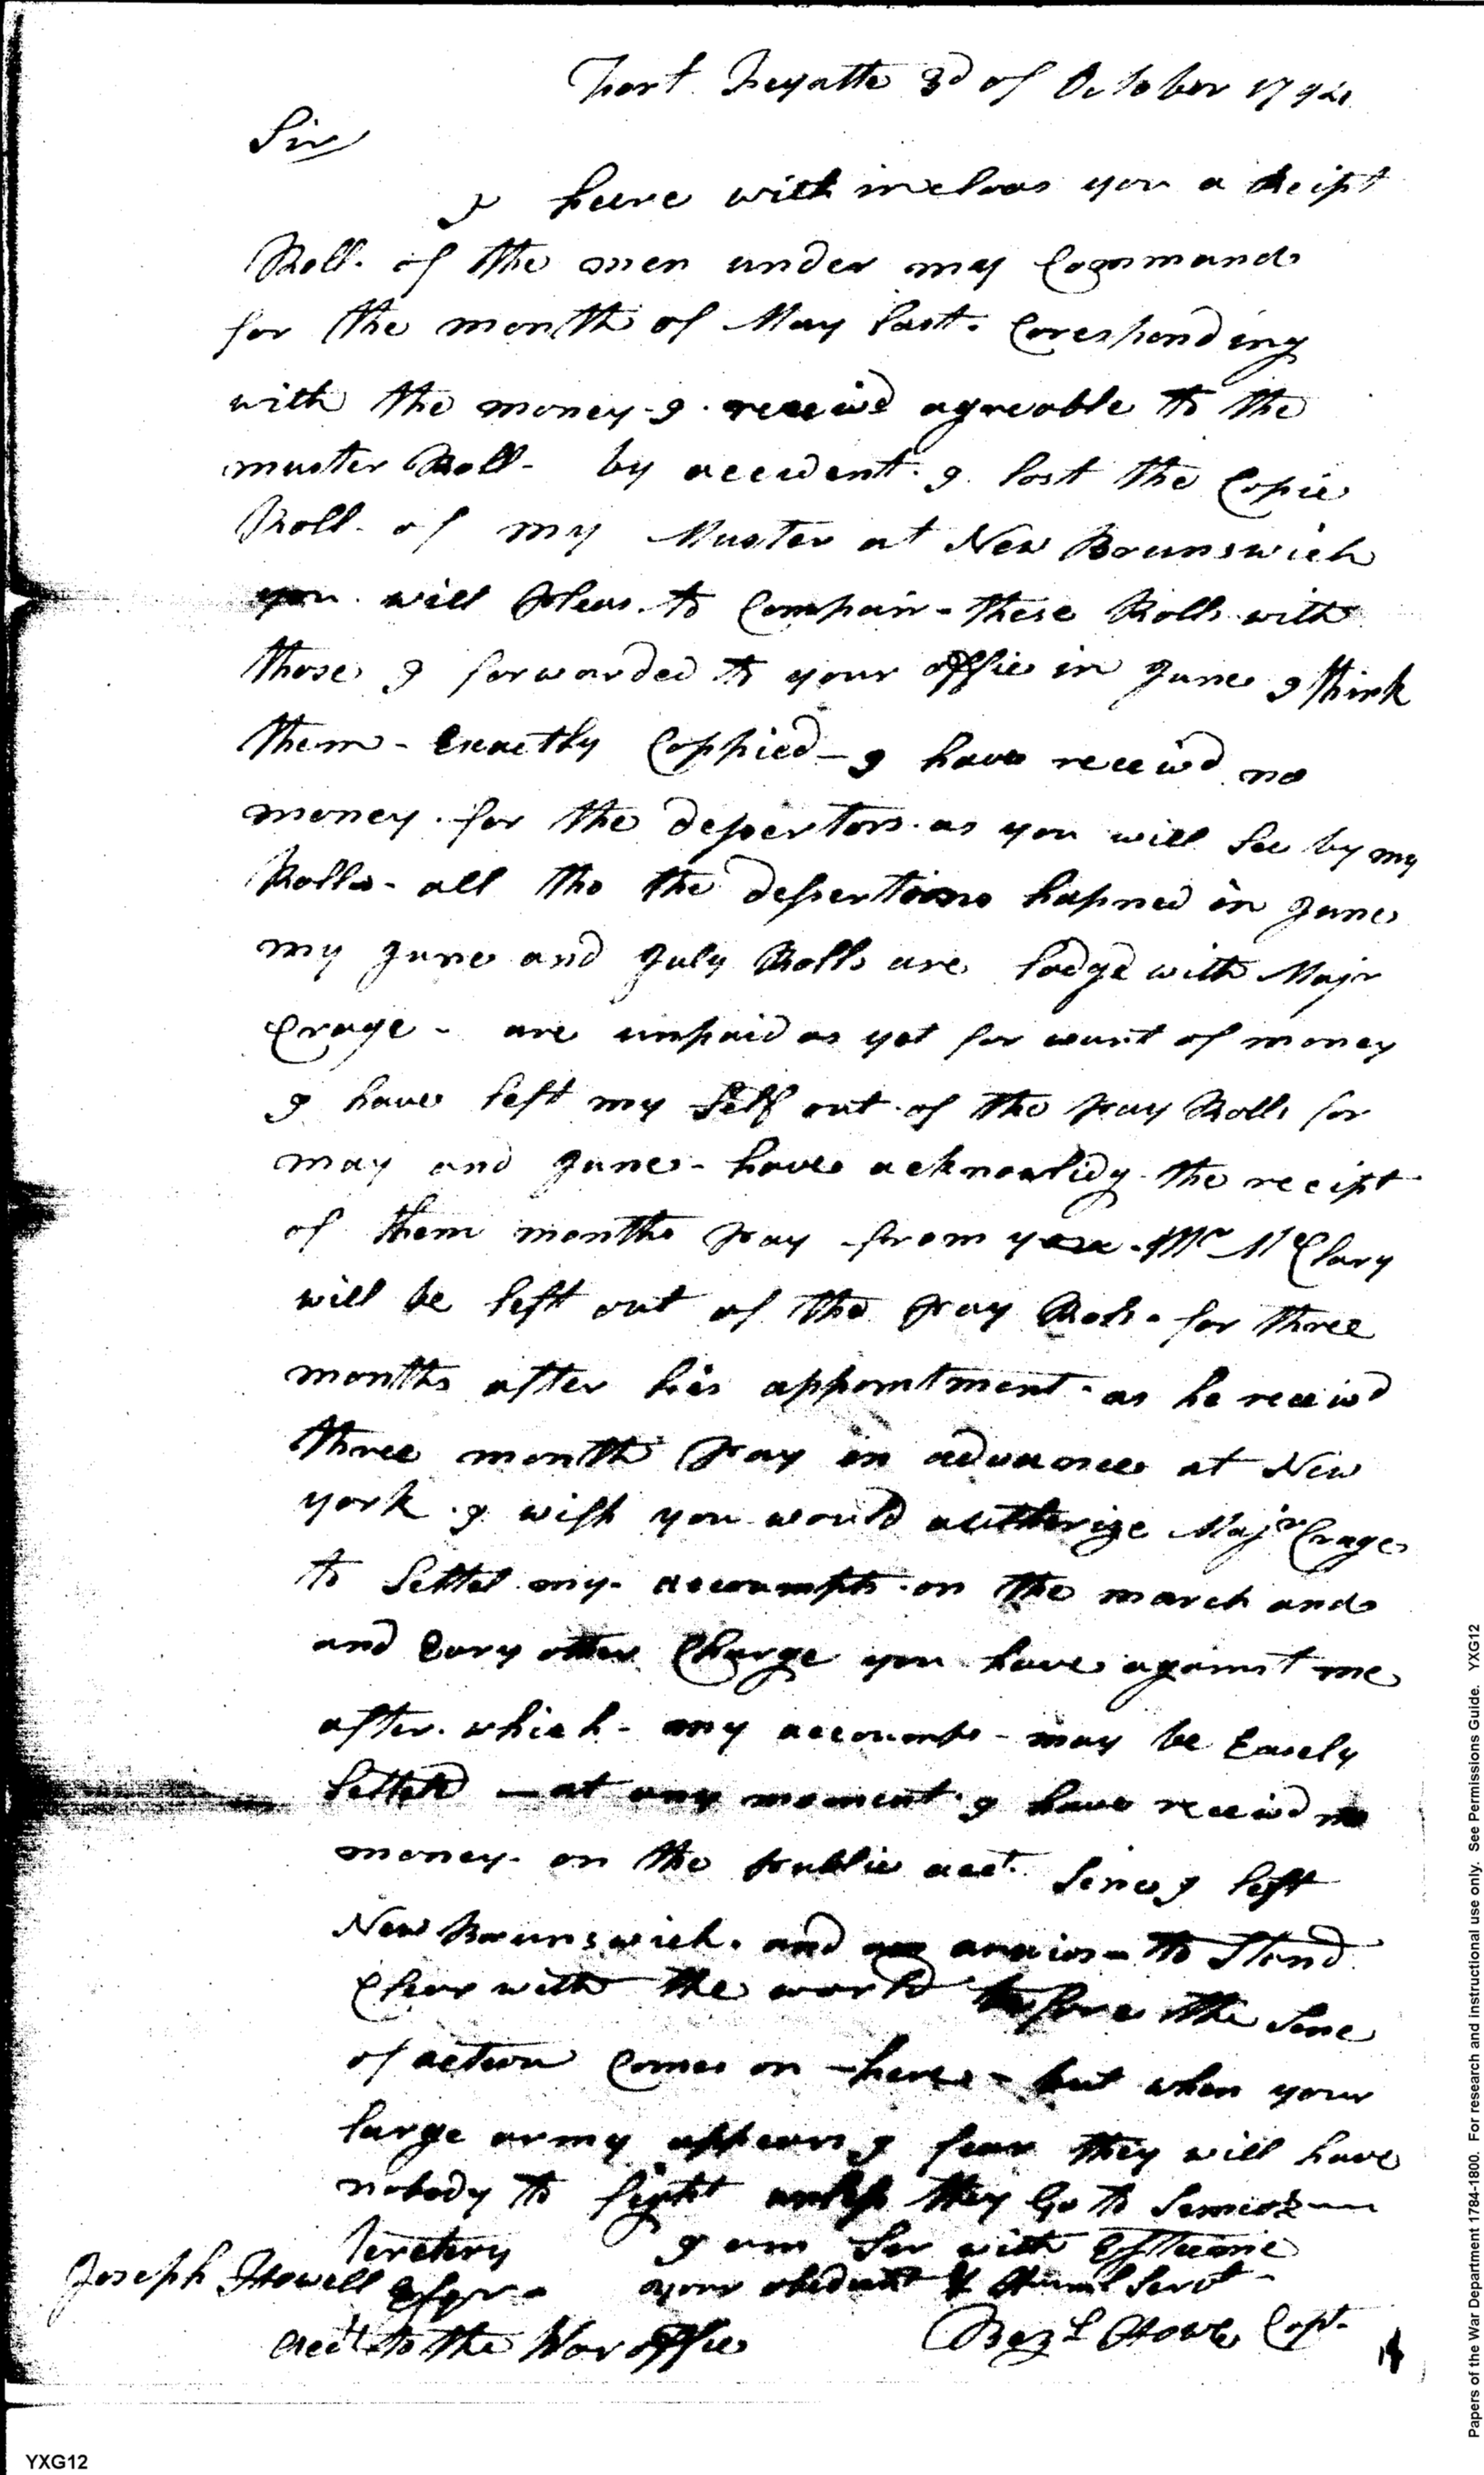 Fort Feyatte 3d of October 1794
Sir
I heere with incloas you a Reipt
Roll of the men under my Command
for the month of May last. Coresponding
with the money I receivd agreable to the
muster Roll - by accident I lost the Copie
Roll of my Muster at New Brunswick
you will pleas to Compair - these Rolls with
those I forwarded to your offie in June I think
them - Exactly Coppied - I have receivd no
money for the desertors as you will See by my
Rolls - all tho the desertions hapned in June
my June and July Rolls are lodgd with Majr
Crage - are unpaid as yet for want of money
I have left my Self out of the pay Rolls for
may and June - have acknowlidg the recipt
of them months pay from you - Mr McClary
will be left out of the pay Rols - for three
months after his appointment as he receivd
three month pay in advance at New
york I wish you would autherize Majr Crage
to Settel my accoumpts on the march and
and Evry other Charge you have against me
after which - my accoumps - may be Easely
Setteld - at any moment I have receivd no
money on the publie acct. Sence I left
New Brunswick. and am anxios to Stand
Clear with the world before the Sene
of action Comes on - here - but when your
large army appears I fear they will have
nobody to fight unless they Go to
Teretery I am Sir with Esteeme
Joseph Howell Esqr your obedient & Humbl Servt
acct to the War offie Bezl Howe Capt.
Papers of the War Department 1784-1800. For research and instructional use only. See Permissions Guide. YXG12
YXG12